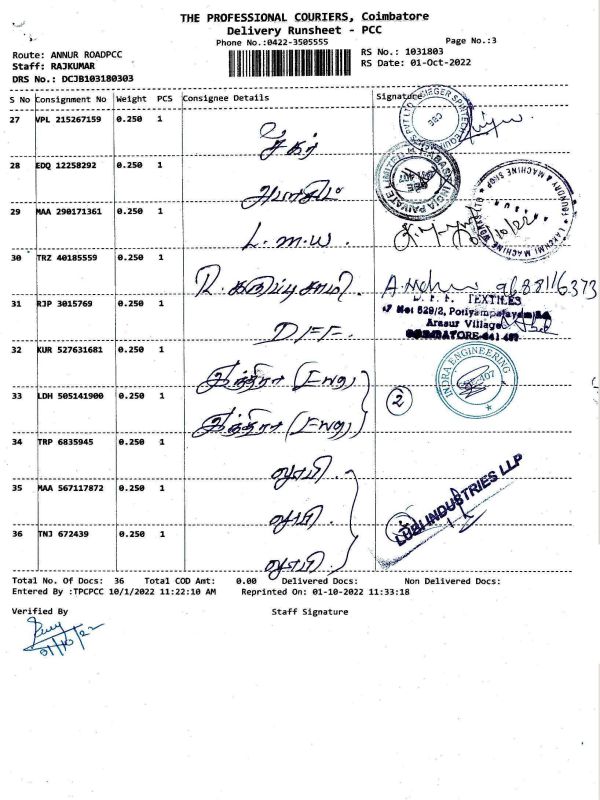 THE PROFESSIONAL COURIERS, Coimbatore
Delivery Runsheet - PCC
Phone No.:0422-3505555
Page No.:3
Route: ANNUR ROADPCC
RS No.: 1031803
Staff: RAJKUMAR
RS Date: 01-Oct-2022
DRS No.: DCJB103180303
S No Consignment No Weight PCS Consignee Details Signature
27 VPL 215267159 0.250 1
சகர்
28 EDQ 12258292 0.250 1
29 MAA 290171361 0.250 1
L.M.W.
30 TRZ 40185559 0.250 1
R. கருப்புசாமி. 9688116373
31 RJP 3015769 0.250 1
TEXTILES
529/2, Potiyampalayam
Arasur Village
COIMBATORE-641 407
D F F.
32 KUR 527631681 0.250 1
இந்திரா (Eng)
INDRA ENGINEERING
33 LDH 505141900 0.250 1
2
இந்திரா (Eng)
34 TRP 6835945 0.250 1
லுபி.
35 MAA 567117872 0.250 1
லுபி.
LUBI INDUSTRIES LLP
36 TNJ 672439 0.250 1
லுபி.
Total No. Of Docs: 36 Total COD Amt: 0.00 Delivered Docs: Non Delivered Docs:
Entered By :TPCPCC 10/1/2022 11:22:10 AM Reprinted On: 01-10-2022 11:33:18
Verified By Staff Signature
01/10/22